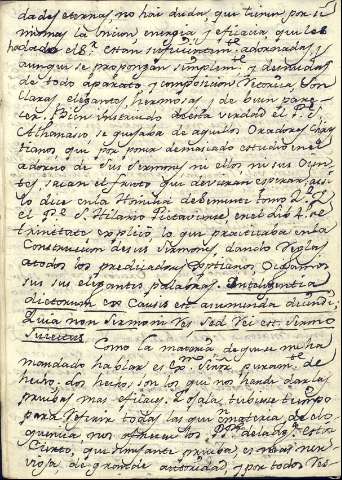 dades eternas no hai duda, que tienen por si
mismas la uncion, energia, y eficacia que les
ha dado el Sr. estan suficientemte. adornadas, y
aunque se propongan simplemte. y desnudas
de todo aparato, y composicion Retorica, son
claras, elegantes, hermosas, y de buen pare-
cer. Bien instruido de esta verdad el P. S.
Athanasio se quejaba de aquellos Oradores Chris
tianos que por poner demasiado estudio en el
adorno de sus Sermones ni ellos ni sus Oien-
tes sacan el fruto que devieran esperar, asi
lo dice en la Homilia de semente tomo 2.
el Pe. S. Hilario Pictaviense en el lib. 4. de
trinitate explicó lo que practicaba en la
Construccion de sus sermones, dando Reglas
a todos los predicadores Xptianos. Oigamos
sus elegantes palabras. Intelligentia
dictorum ex Causis est assumenda dicendi;
Quia non Sermoni Res, sed Rei est Sermo
Subiectus
Como la materia de que se me ha
mandado hablar es Exmo. Señor puramte. de
hecho: dos hechos, son los que nos han de dar las
pruebas mas eficaces. Ojala tubiese tiempo
para referir todas las que en materia de elo
quencia nos ofrecen los PPs. de la Iga. esto es
Cierto, que semejante prueba, es mas ner-
viosa de grande autoridad, y por todos res-